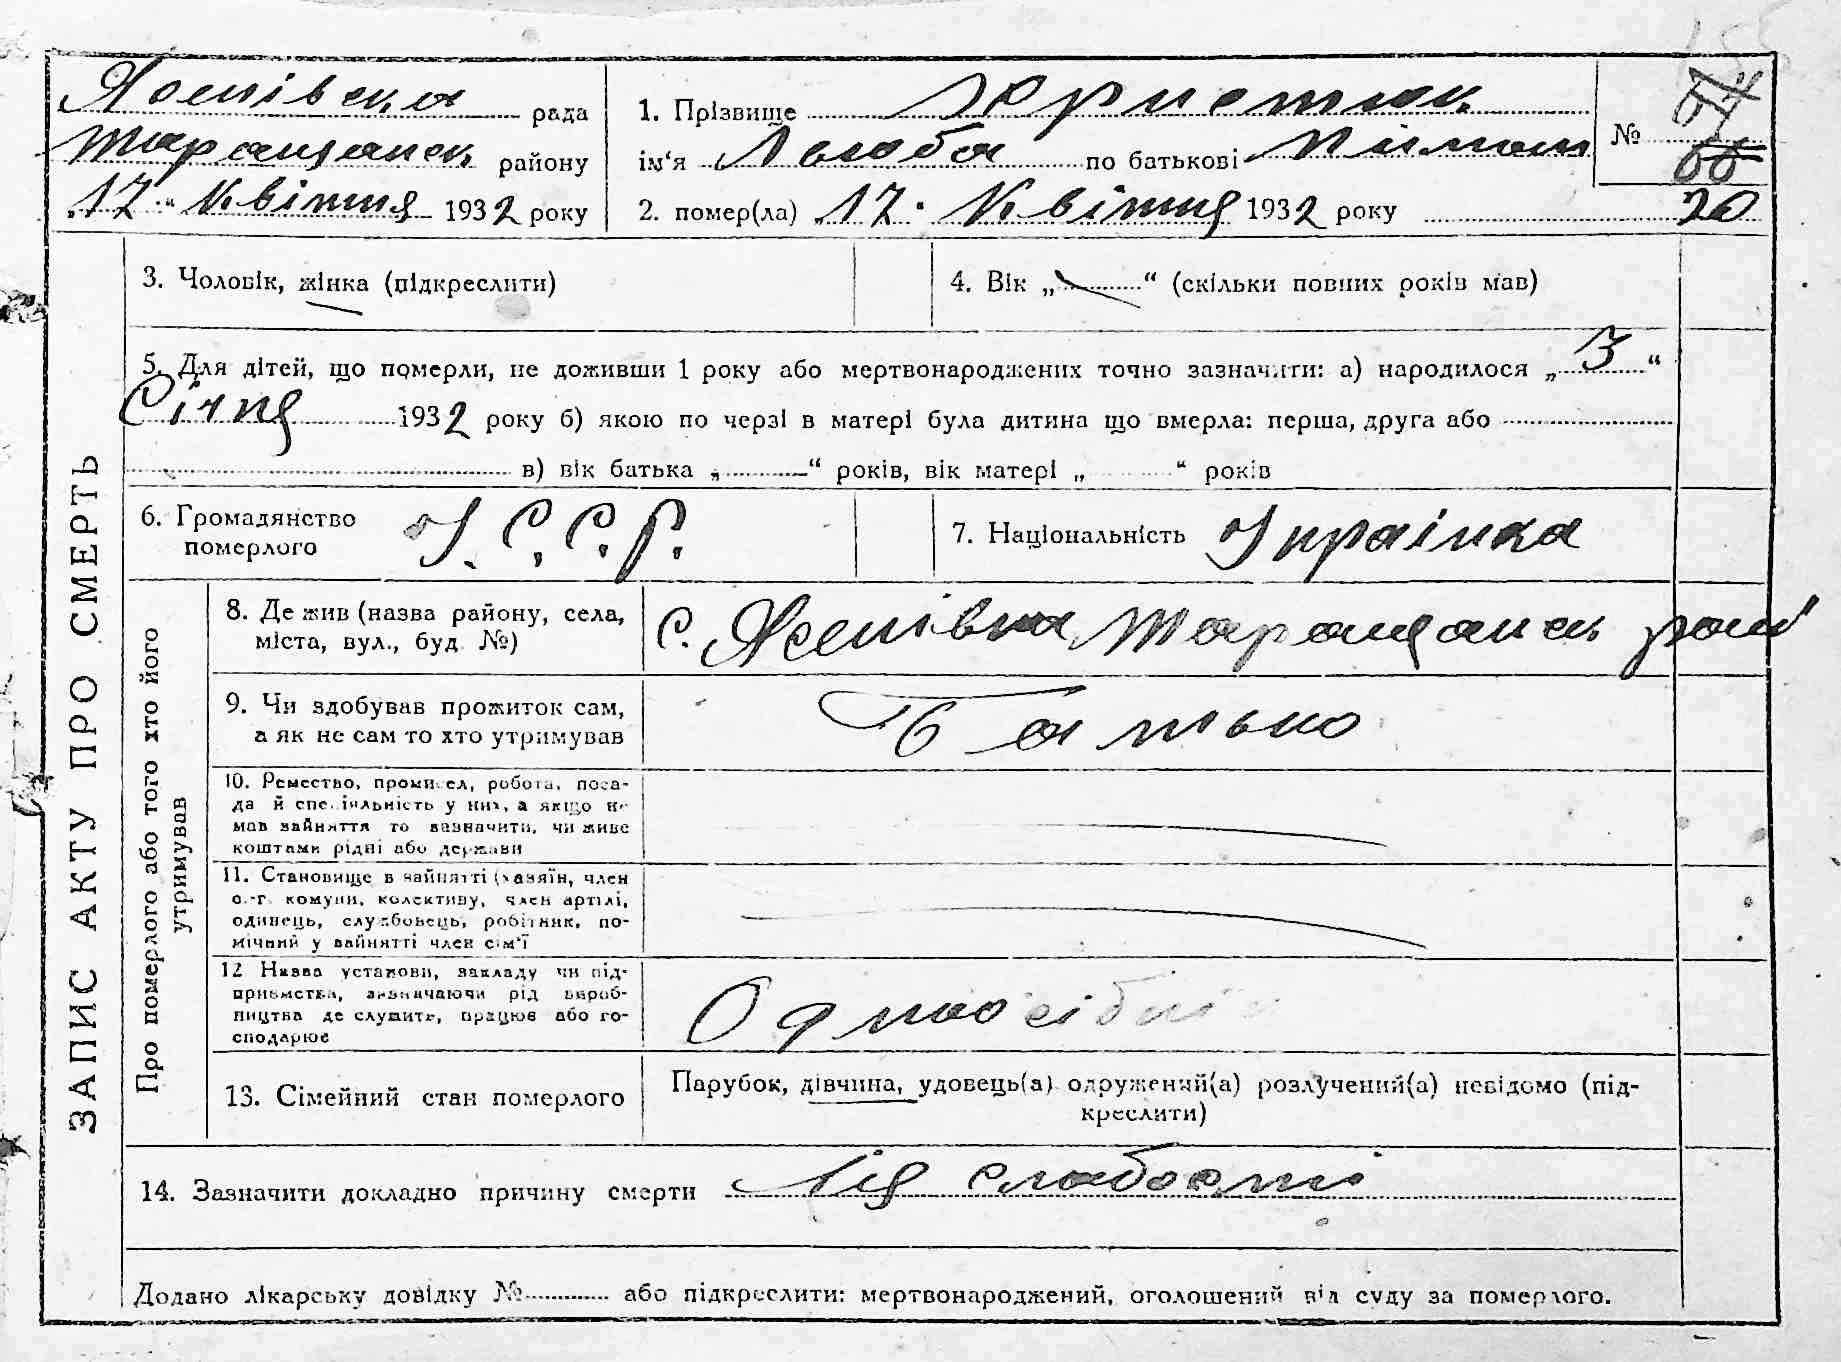 рада
Таращанськ району
„17“ Квітня 1932 року
1. Прізвище
ім'я Люба по батькові
2. помер(ла) „17“ Квітня 1932 року
№
66
20
ЗАПИС АКТУ ПРО СМЕРТЬ
3. Чоловік, жінка (підкреслити)
4. Вік „ “ (скільки повних років мав)
5. Для дітей, що померли, не доживши 1 року або мертвонароджених точно зазначити: а) народилося „3“
Січня 1932 року б) якою по черзі в матері була дитина що вмерла: перша, друга або
в) вік батька „ “ років, вік матері „ “ років
6. Громадянство
померлого
У.С.С.Р.
7. Національність Українка
Про померлого або того хто його
утримував
8. Де жив (назва району, села,
міста, вул., буд. №)
с. Таращанськ рай
9. Чи здобував прожиток сам,
а як не сам то хто утримував
Батько
10. Ремество, промисел, робота, поса-
да й спеціяльність у них, а якщо не
мав зайняття то зазначити, чи живе
коштами рідні або держави
11. Становище в зайнятті (хазяїн, член
с.-г. комуни, колективу, член артілі,
одинець, службовець, робітник, по-
мічний у зайнятті член сім'ї
12 Назва установи, закладу чи під-
приємства, зазначаючи рід вироб-
ництва де служить, працює або го-
сподарює
Одноосібн
13. Сімейний стан померлого
Парубок, дівчина, удовець(а) одружений(а) розлучений(а) невідомо (під-
креслити)
14. Зазначити докладно причину смерти Від слабості
Додано лікарську довідку № або підкреслити: мертвонароджений, оголошений від суду за померлого.